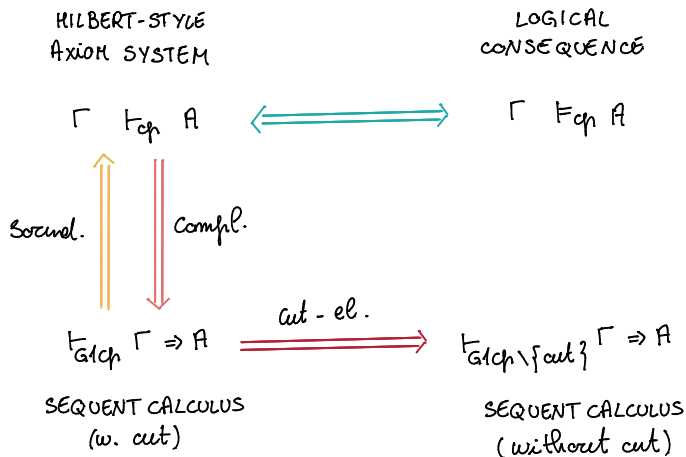 HILBERT-STYLE
AXIOM SYSTEM
LOGICAL
CONSEQUENCE
Γ ⊢cp A
Γ ⊨cp A
Sound.
Compl.
cut-el.
⊢G1cp Γ ⇒ A
⊢G1cp\{cut} Γ ⇒ A
SEQUENT CALCULUS
(w. cut)
SEQUENT CALCULUS
(without cut)